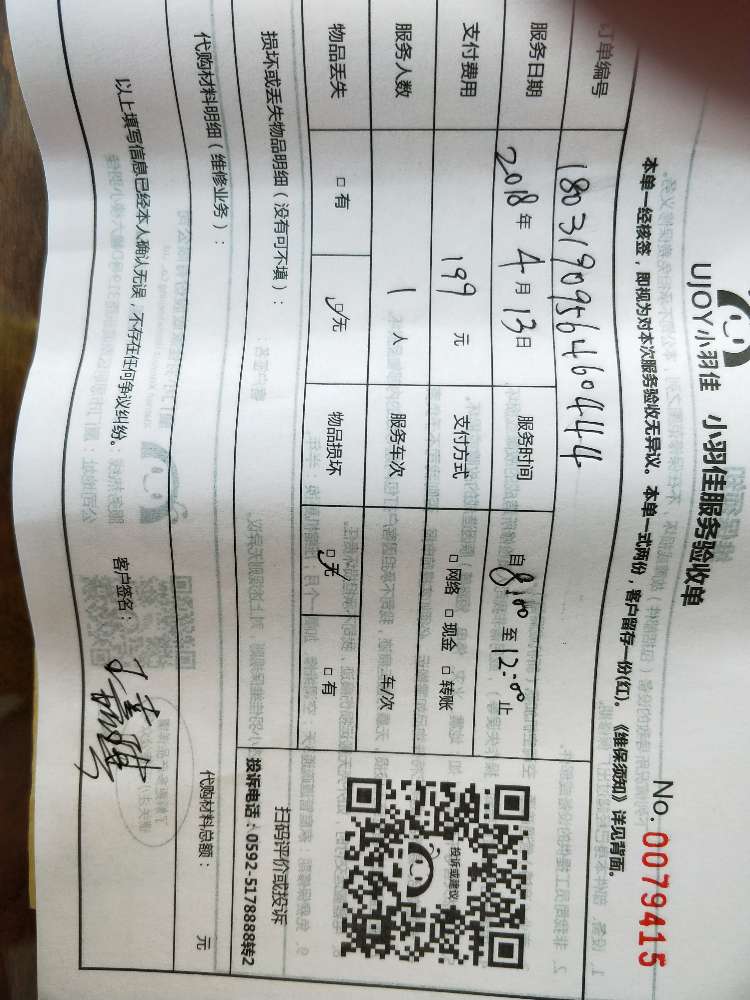 UJOY小羽佳 小羽佳服务验收单
No. 0079415
本单一经核签，即视为对本次服务验收无异议。本单一式两份，客户留存一份(红)。《维保须知》详见背面。
订单编号 18031909564604444
服务日期 2018年 4月 13日 服务时间 自8:00至12:00止
支付费用 199 元 支付方式 □网络 □现金 □转账
服务人数 1 人 服务车次 车/次
物品丢失 □有 □无 物品损坏 □无 □有
投诉或建议
扫码评价或投诉
投诉电话：0592-5178888转2
损坏或丢失物品明细（没有可不填）：
代购材料明细（维修业务）： 代购材料总额： 元
以上填写信息已经本人确认无误，不存在任何争议纠纷。 客户签名：